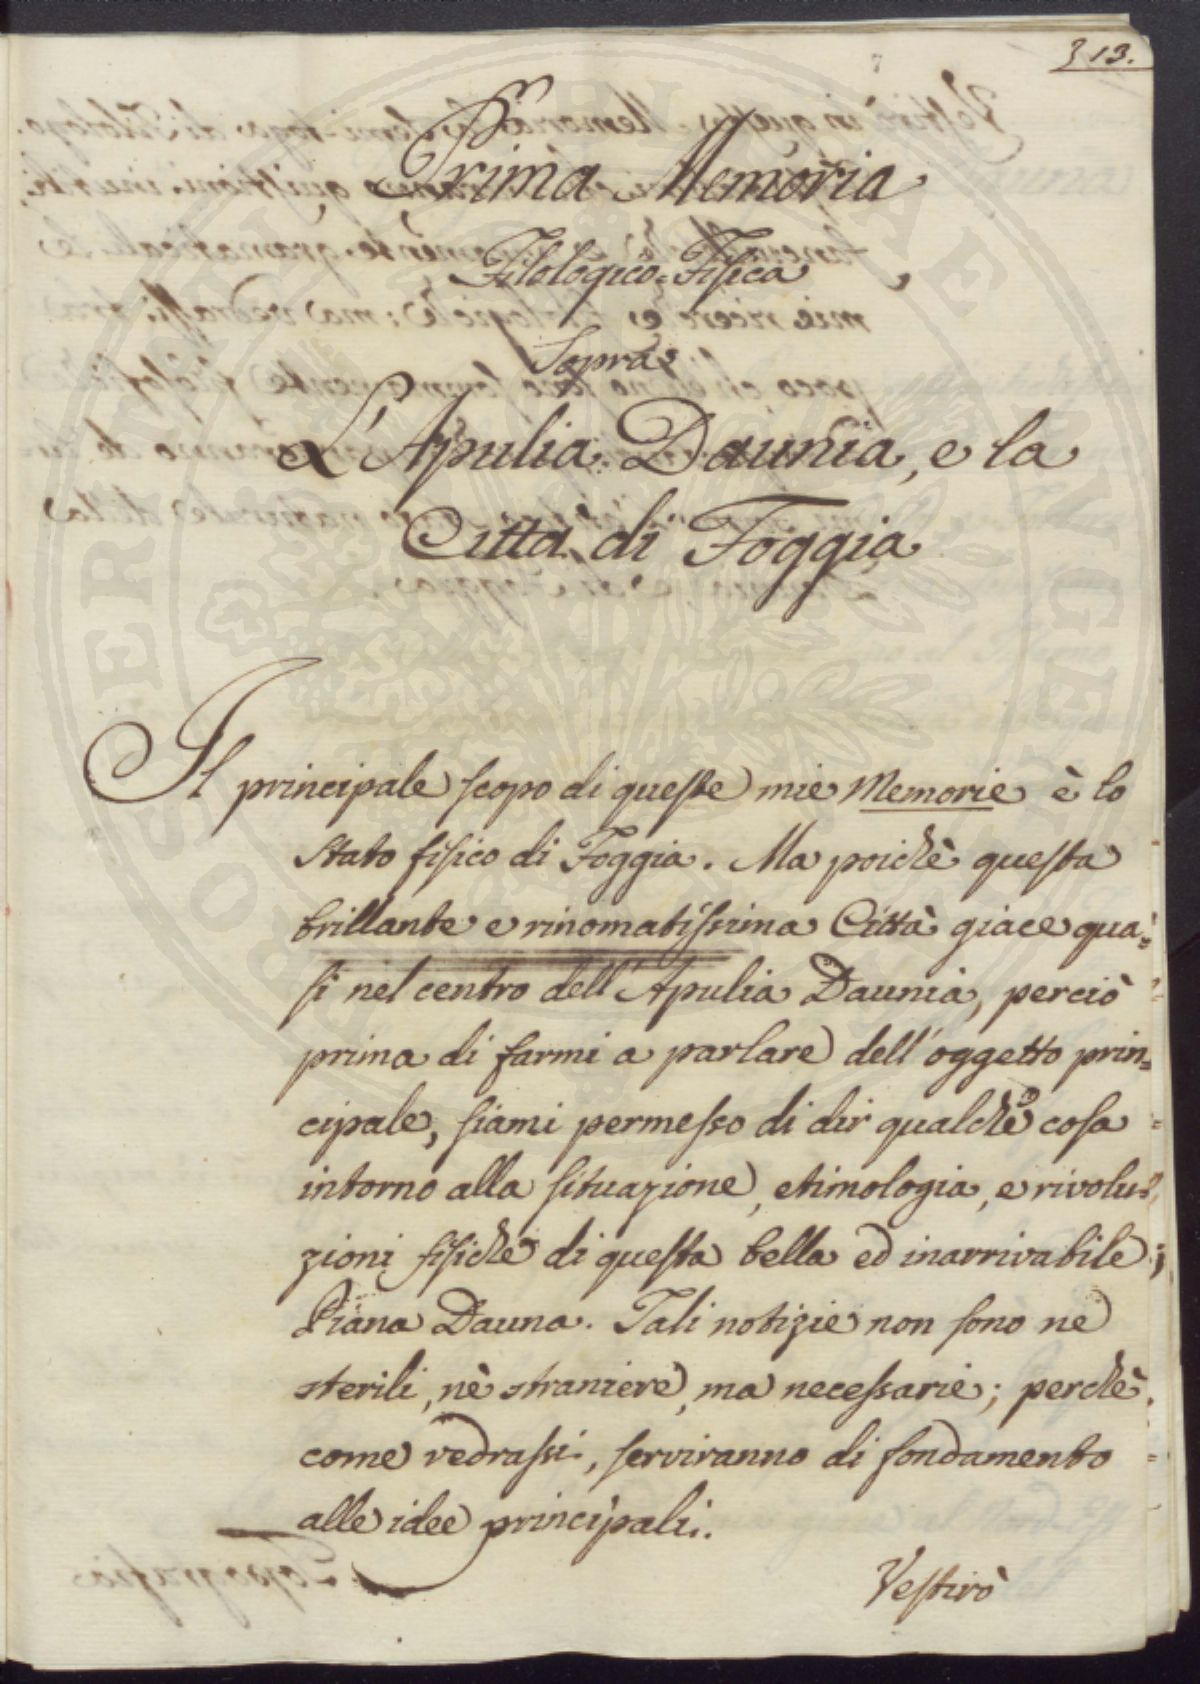 313.
Prima Memoria
Filologico=Fisica
Sopra
L'Apulia Daunia, e la
Città di Foggia
Il principale scopo di queste mie Memorie è lo
stato fisico di Foggia. Ma poichè questa
brillante e rinomatissima Città giace qua=
si nel centro dell'Apulia Daunia, perciò
prima di farmi a parlare dell'oggetto prin=
cipale, siami permesso di dir qualchè cosa
intorno alla situazione, etimologia, e rivolu=
zioni fisichè di questa bella ed inarrivabile
Piana Dauna. Tali notizie non sono ne
sterili, nè straniere, ma necessarie; perchè
come vedrassi, serviranno di fondamento
alle idee principali.
Vestirò